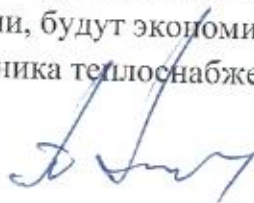 ли, будут экономи
ника теплоснабже